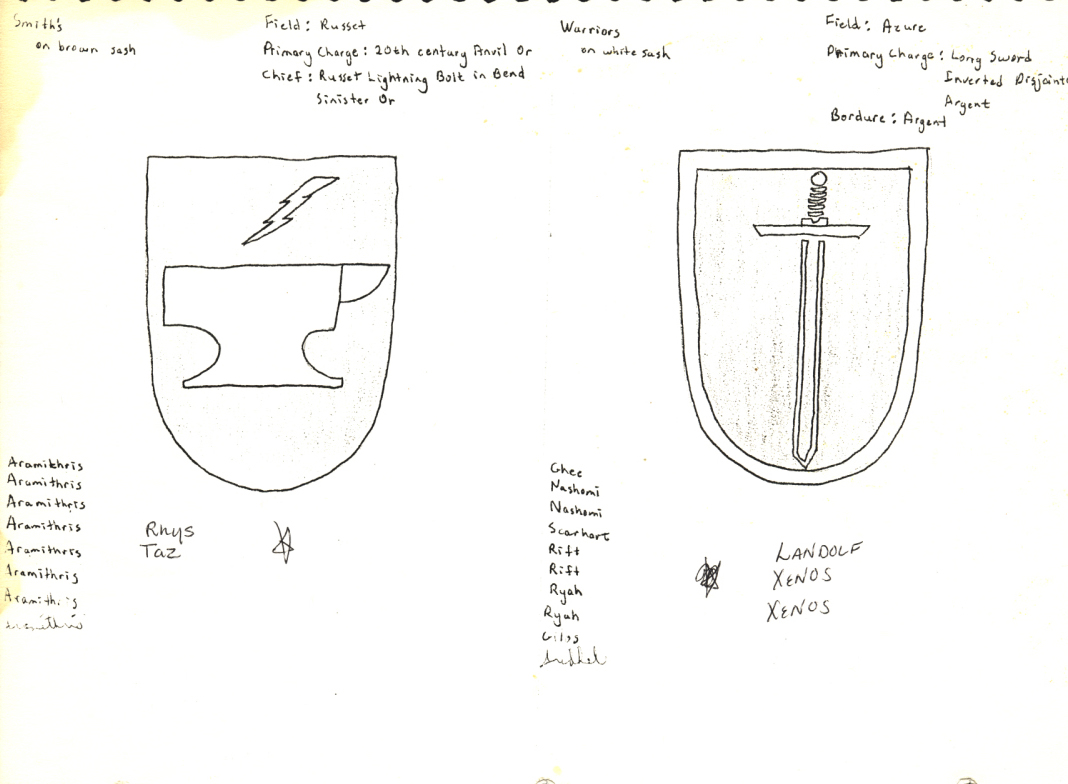 Smith's
on brown sash
Field: Russet
Primary Charge: 20th century Anvil Or
Chief: Russet Lightning Bolt in Bend
Sinister Or
Aramithris
Aramithris
Aramithris
Aramithris
Aramithris
Aramithris
Rhys
Taz
Warriors
on white sash
Field: Azure
Primary Charge: Long Sword
Inverted Disjointe
Argent
Bordure: Argent
Ghee
Nashomi
Nashomi
Rift
Rift
Ryah
Ryah
LANDOLF
XENOS
XENOS